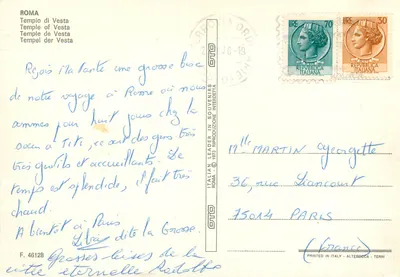 ROMA
Tempio di Vesta
Temple of Vesta
Temple de Vesta
Tempel der Vesta
de notre voyage à Rome où nous
sommes pour huit jours chez la
à Titi, ce sont des gens très
très gentils et accueillants. Le
temps est splendide, il fait très
chaud.
A bientôt à Paris
dite la Grosse.
Grosses bises de la
ville éternelle
F. 46128
OTO
ITALIAN LEADER IN SOUVENIRS
OTO
ROMA
RIPRODUZIONE INTERDETTA
OTO
70
REPUBBLICA
ITALIANA
50
REPUBBLICA
ITALIANA
Mlle MARTIN Georgette
36, rue Liancourt
75014 PARIS
(France)
PRINTED IN ITALY - ALTEROCCA - TERNI